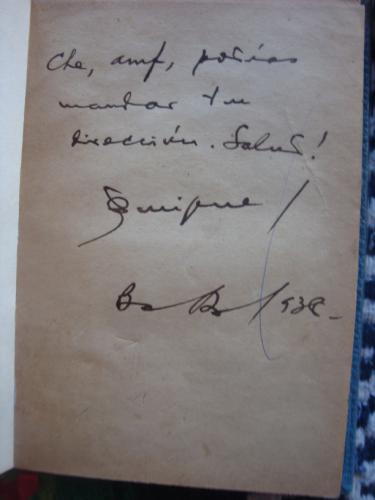 Che, amf, podrías
mandar tu
dirección. Salud!
Enrique
Bs As 938_